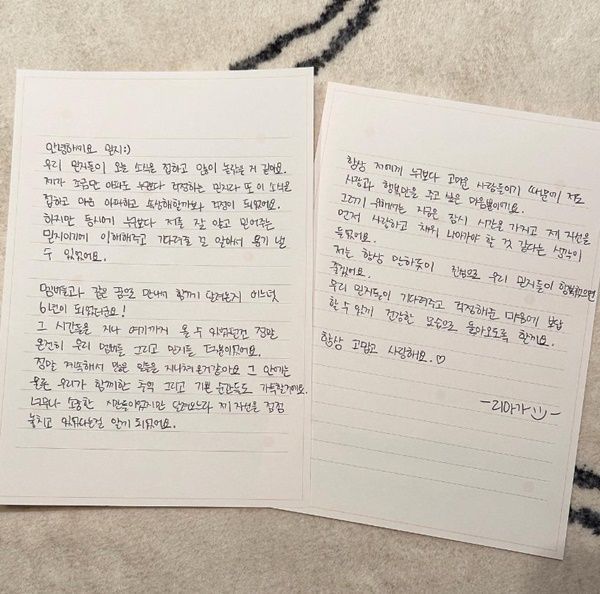 안녕하세요 믿지:)
우리 믿지들이 오늘 소식을 접하고 많이 놀랐을 거 같아요.
제가 조금만 아파도 누구보다 걱정하는 믿지라 또 이 소식을
접하고 마음 아파하고 속상해할까봐 걱정이 되었어요.
하지만 동시에 누구보다 저를 잘 알고 믿어주는
믿지이기에 이해해주고 기다려줄 걸 알아서 용기 낼
수 있었어요.
멤버들과 같은 꿈으로 만나서 함께 달려온지 어느덧
6년이 되었더라구요!
그 시간들을 지나 여기까지 올 수 있었던건 정말
온전히 우리 멤버들 그리고 믿지들 덕분이었어요.
정말 계속해서 많은 일들을 지나쳐 온거같아요 그 안에는
물론 우리가 함께한 추억 그리고 기쁜 순간들도 가득할거에요.
너무나 소중한 시간들이었지만 달려오느라 제 자신을 점점
놓치고 있었다는걸 알게 되었어요.
항상 저에게 누구보다 고마운 사람들이기 때문에 저도
사랑과 행복만을 주고 싶은 마음뿐이에요.
그러기 위해서는 지금은 잠시 시간을 가지고 제 자신을
먼저 사랑하고 채워 나아가야 할 것 같다는 생각이
들었어요.
저는 항상 말하듯이 진심으로 우리 믿지들이 행복했으면
좋겠어요.
우리 믿지들이 기다려주고 걱정해준 마음에 보답
할 수 있게 건강한 모습으로 돌아오도록 할게요.
항상 고맙고 사랑해요.♡
-리아가☺-